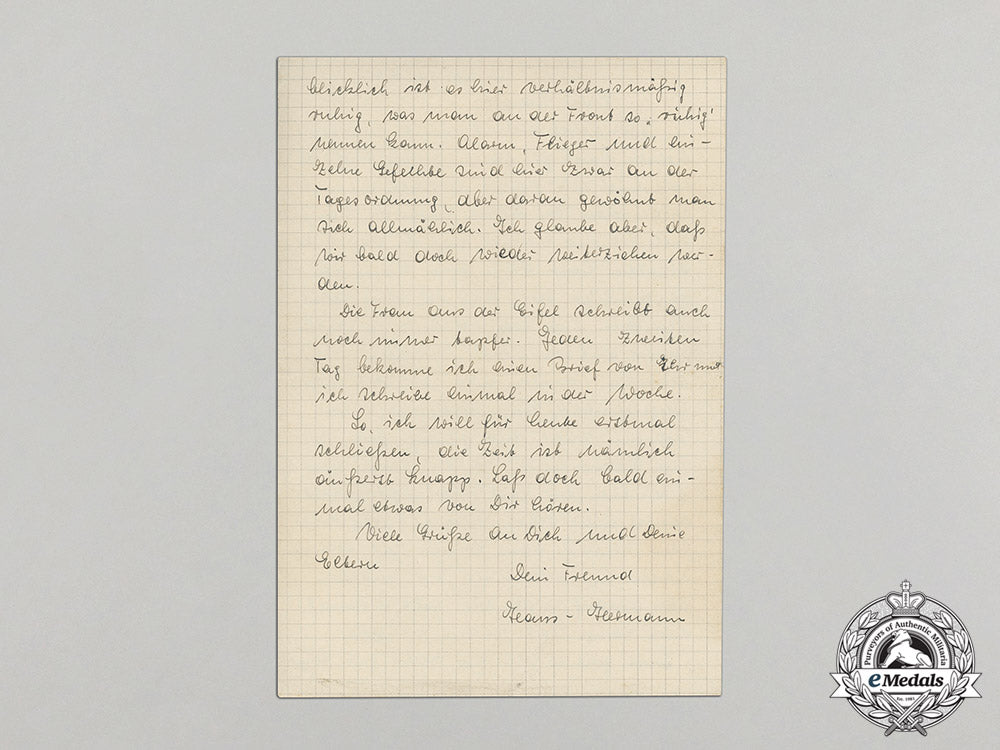 blicklich ist es hier verhältnismäßig
ruhig, was man an der Front so „ruhig“
nennen kann. Alarm, Flieger und ein-
zelne Gefechte sind hier zwar an der
Tagesordnung, aber daran gewöhnt man
sich allmählich. Ich glaube aber, daß
wir bald doch wieder weiterziehen wer-
den.
Die Frau aus der Eifel schreibt auch
noch immer tapfer. Jeden zweiten
Tag bekomme ich einen Brief von Ihr und
ich schreibe einmal in der Woche.
So, ich will für heute erstmal
schließen, die Zeit ist nämlich
äußerst knapp. Laß doch bald ein-
mal etwas von Dir hören.
Viele Grüße an Dich und Deine
Eltern
Dein Freund
Hans-Hermann
Purveyors of Authentic Militaria
eMedals
Est. 1985